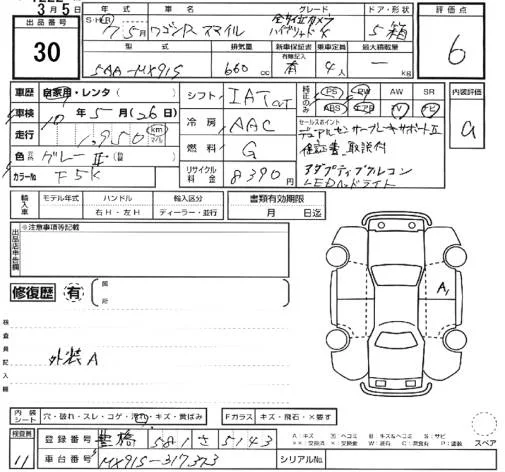 出品番号
30
3月5日
年式 車名 グレード ドア・形状
S・H・R
7 5月 ワゴンR スマイル 全方位カメラ ハイブリッドX 5 箱
型式 排気量 新車保証書 乗車定員 最大積載量
有無記入
5AA-MX91S 660cc 有 4人 — kg
評価点
6
車歴 自家用・レンタ
車検 10年5月(26日
走行 1,950 km マイル
色 グレーⅡ
カラーNo F5K
シフト IAT
冷房 AAC
燃料 G
リサイクル料金 8390円
純正のみ
PS PW AW SR
ABS エアB TV
セールスポイント
デュアルセンサーブレーキサポートⅡ
保証書、取説付
アダプティブクルコン
LEDヘッドライト
内装評価
a
輸入車 モデル年式 ハンドル 輸入区分
右H・左H ディーラー・並行
書類有効期限
月 日迄
出品店申告欄
※注意事項等記載
修復歴 有
箇所
検査員記入欄
外装A
A1
内装シート 穴・破れ・スレ・コゲ・汚れ・キズ・黄ばみ
Fガラス キズ・飛石・X要す
検査員
11
登録番号 豊橋 581 さ 5143
車台番号 MX91S-317373
シリアルNo.
スペア